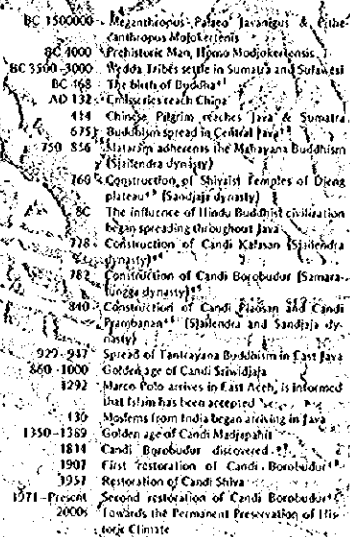 BC 1500000 Meganthropus Palaeo Javanigus & Pithe-
canthropus Mojokertenis
BC 4000 Prehistoric Man, Homo Modjokertensis
BC 3500-3000 Wedda Tribes settle in Sumatra and Sulawesi
BC 468 The birth of Buddha
AD 132 Emissaries reach China
414 Chinese Pilgrim reaches Java & Sumatra
675 Buddhism spread in Central Java
750-856 Mataram adherents the Mahayana Buddhism
(Sjailendra dynasty)
760 Construction of Shivaist Temples of Djeng
plateau (Sandjaja dynasty)
8C The influence of Hindu Buddhist civilization
began spreading throughout Java
778 Construction of Candi Kalasan (Sjailendra
dynasty)
782 Construction of Candi Borobudur (Samara-
tungga dynasty)
840 Construction of Candi Plaosan and Candi
Prambanan (Sjailendra and Sandjaja dy-
nasty)
929-947 Spread of Tantrayana Buddhism in East Java
860-1000 Golden age of Candi Sriwidjaja
1292 Marco Polo arrives in East Aceh, is informed
that Islam has been accepted
Moslems from India began arriving in Java
1350-1389 Golden age of Candi Madjapahit
1814 Candi Borobudur discovered
1907 First restoration of Candi Borobudur
1957 Restoration of Candi Shiva
1971-Present Second restoration of Candi Borobudur
2000s Towards the Permanent Preservation of His-
toric Climate